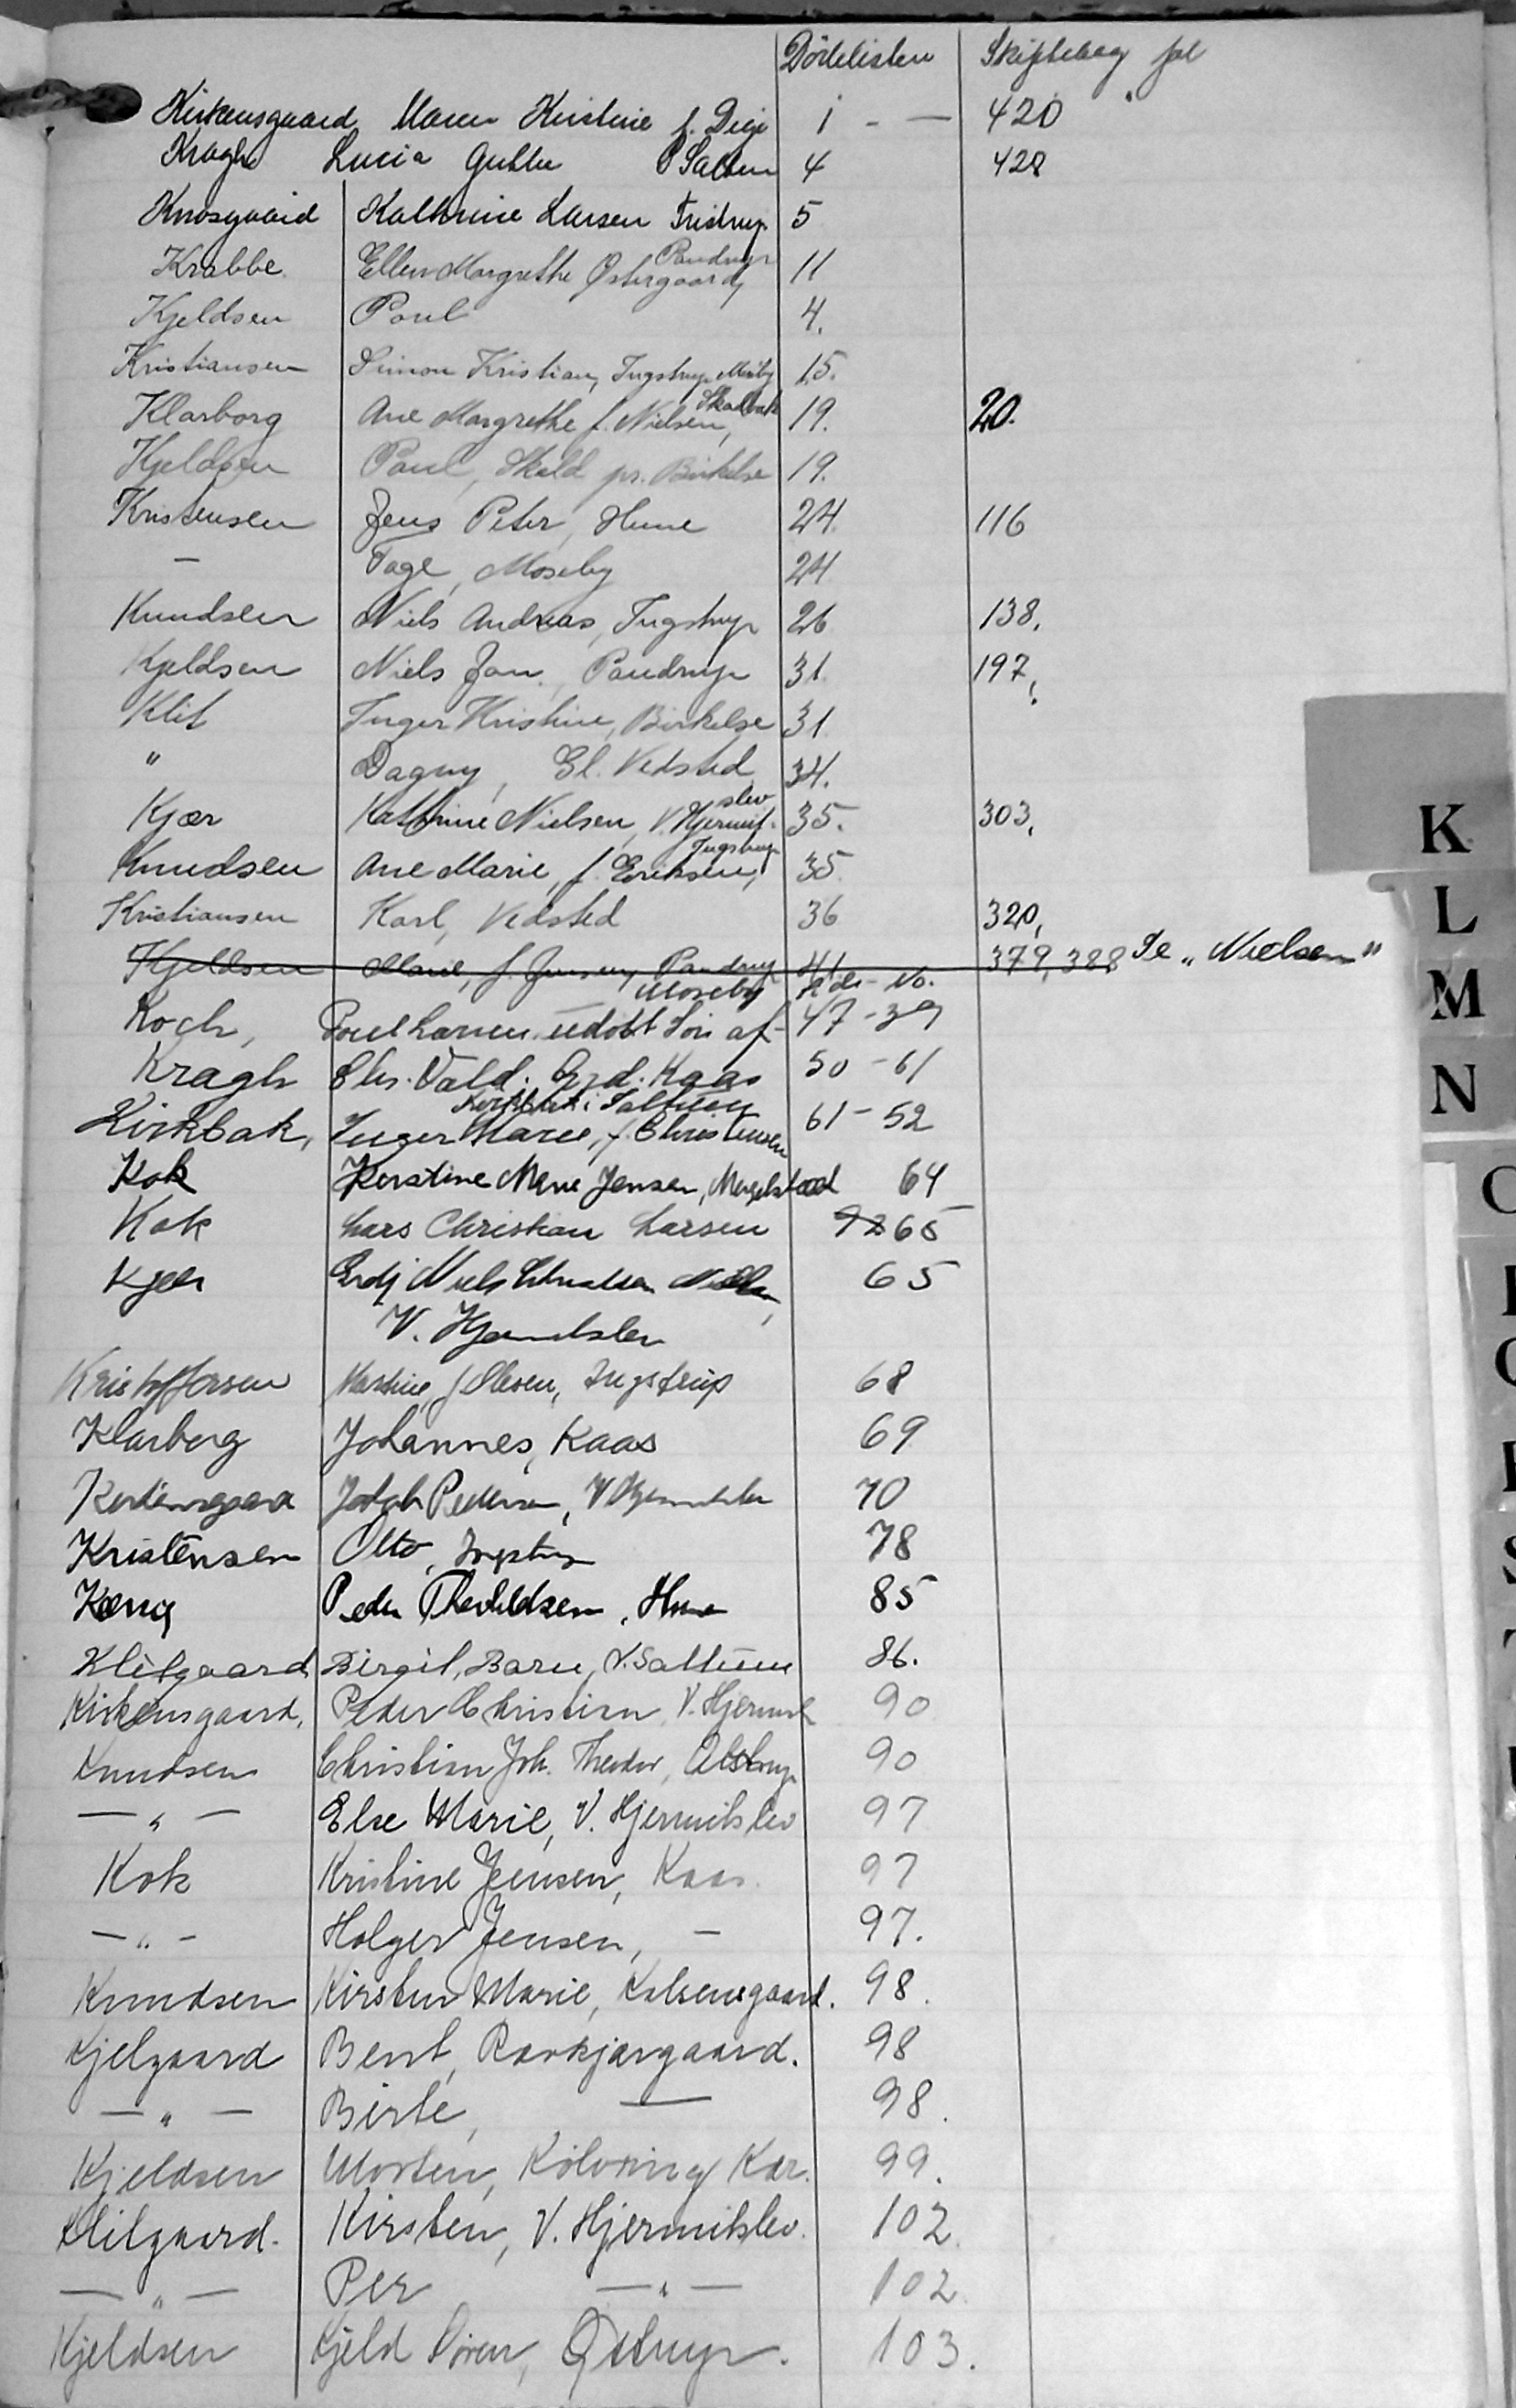 Dödelisten Skiftebog fol
Kirkensgaard Maren Kirstine f. Dige 1 - — 420
Kragh Lucia Gutte Saltum 4 428
Knosgaard Kathrine Larsen Tristrup 5
Pandrup
Krabbe Ellen Margrethe Østergaard, 11
Kjeldsen Poul 4.
Kristiansen Simon Kristian, Ingstrup Mørby 15.
Klarborg Ane Margrethe f. Nielsen, 19. 20.
Kjeldsen Poul, Skeld pr. Birkelse 19.
Kristensen Jens Peter, Hune 24. 116
— Tage, Moseby 24
Knudsen Niels Andreas, Ingstrup 26 138.
Kjeldsen Niels Jan., Pandrup 31. 197.
Klit Inger Kristine, Birkelse 31.
" Dagny, Gl. Vedsted 34.
slev
Kjær Kathrine Nielsen, V. Hjermit- 35. 303.
Ingstrup
Knudsen Ane Marie, f. Eriksen, 35.
Kristiansen Karl, Vedsted 36 320,
Kjeldsen Marie, f. Jensen, Pandrup 41 379, 388 Se „Nielsen"
Moseby No.
Koch, Poul Larsen udøbt Søn af 47-39
Kragh Chr. Vald. Grd. Kaas 50-61
i Saltum
Kirkbak, Inger Marie, f. Christensen 61-52
Kok Kerstine Marie Jensen, 64
Kok Lars Christian Larsen 65
Kjær Grdj Niels Christian
V. Hjermitslev 65
Kristoffersen Martine f Olesen, Ingstrup 68
Klarborg Johannes, Kaas 69
Jakob Pedersen, V Hjermitslev 70
Kristensen Otto, Ingstrup 78
Peder Thevildsen, Hune 85
Klitgaard Birgit, Barn, V. Saltum 86.
Kirkensgaard, Peder Christian, V. Hjermit 90
Knudsen Christian Joh. Theodor, Alstrup 90
— " — Else Marie, V. Hjermitslev 97
Kok Kristine Jensen, Kaas. 97
— " — Holger Jensen, — 97.
Knudsen Kirsten Marie, Kalsensgaard. 98.
Kjelgaard Bent, Ravkjærgaard. 98
— " — Birte, — 98.
Kjeldsen Morten, Kølvring Kær. 99.
Klitgaard. Kirsten, V. Hjermitslev. 102.
— " — Per — " — 102.
Kjeldsen Kjeld Søren, Østrup. 103.
K
L
M
N